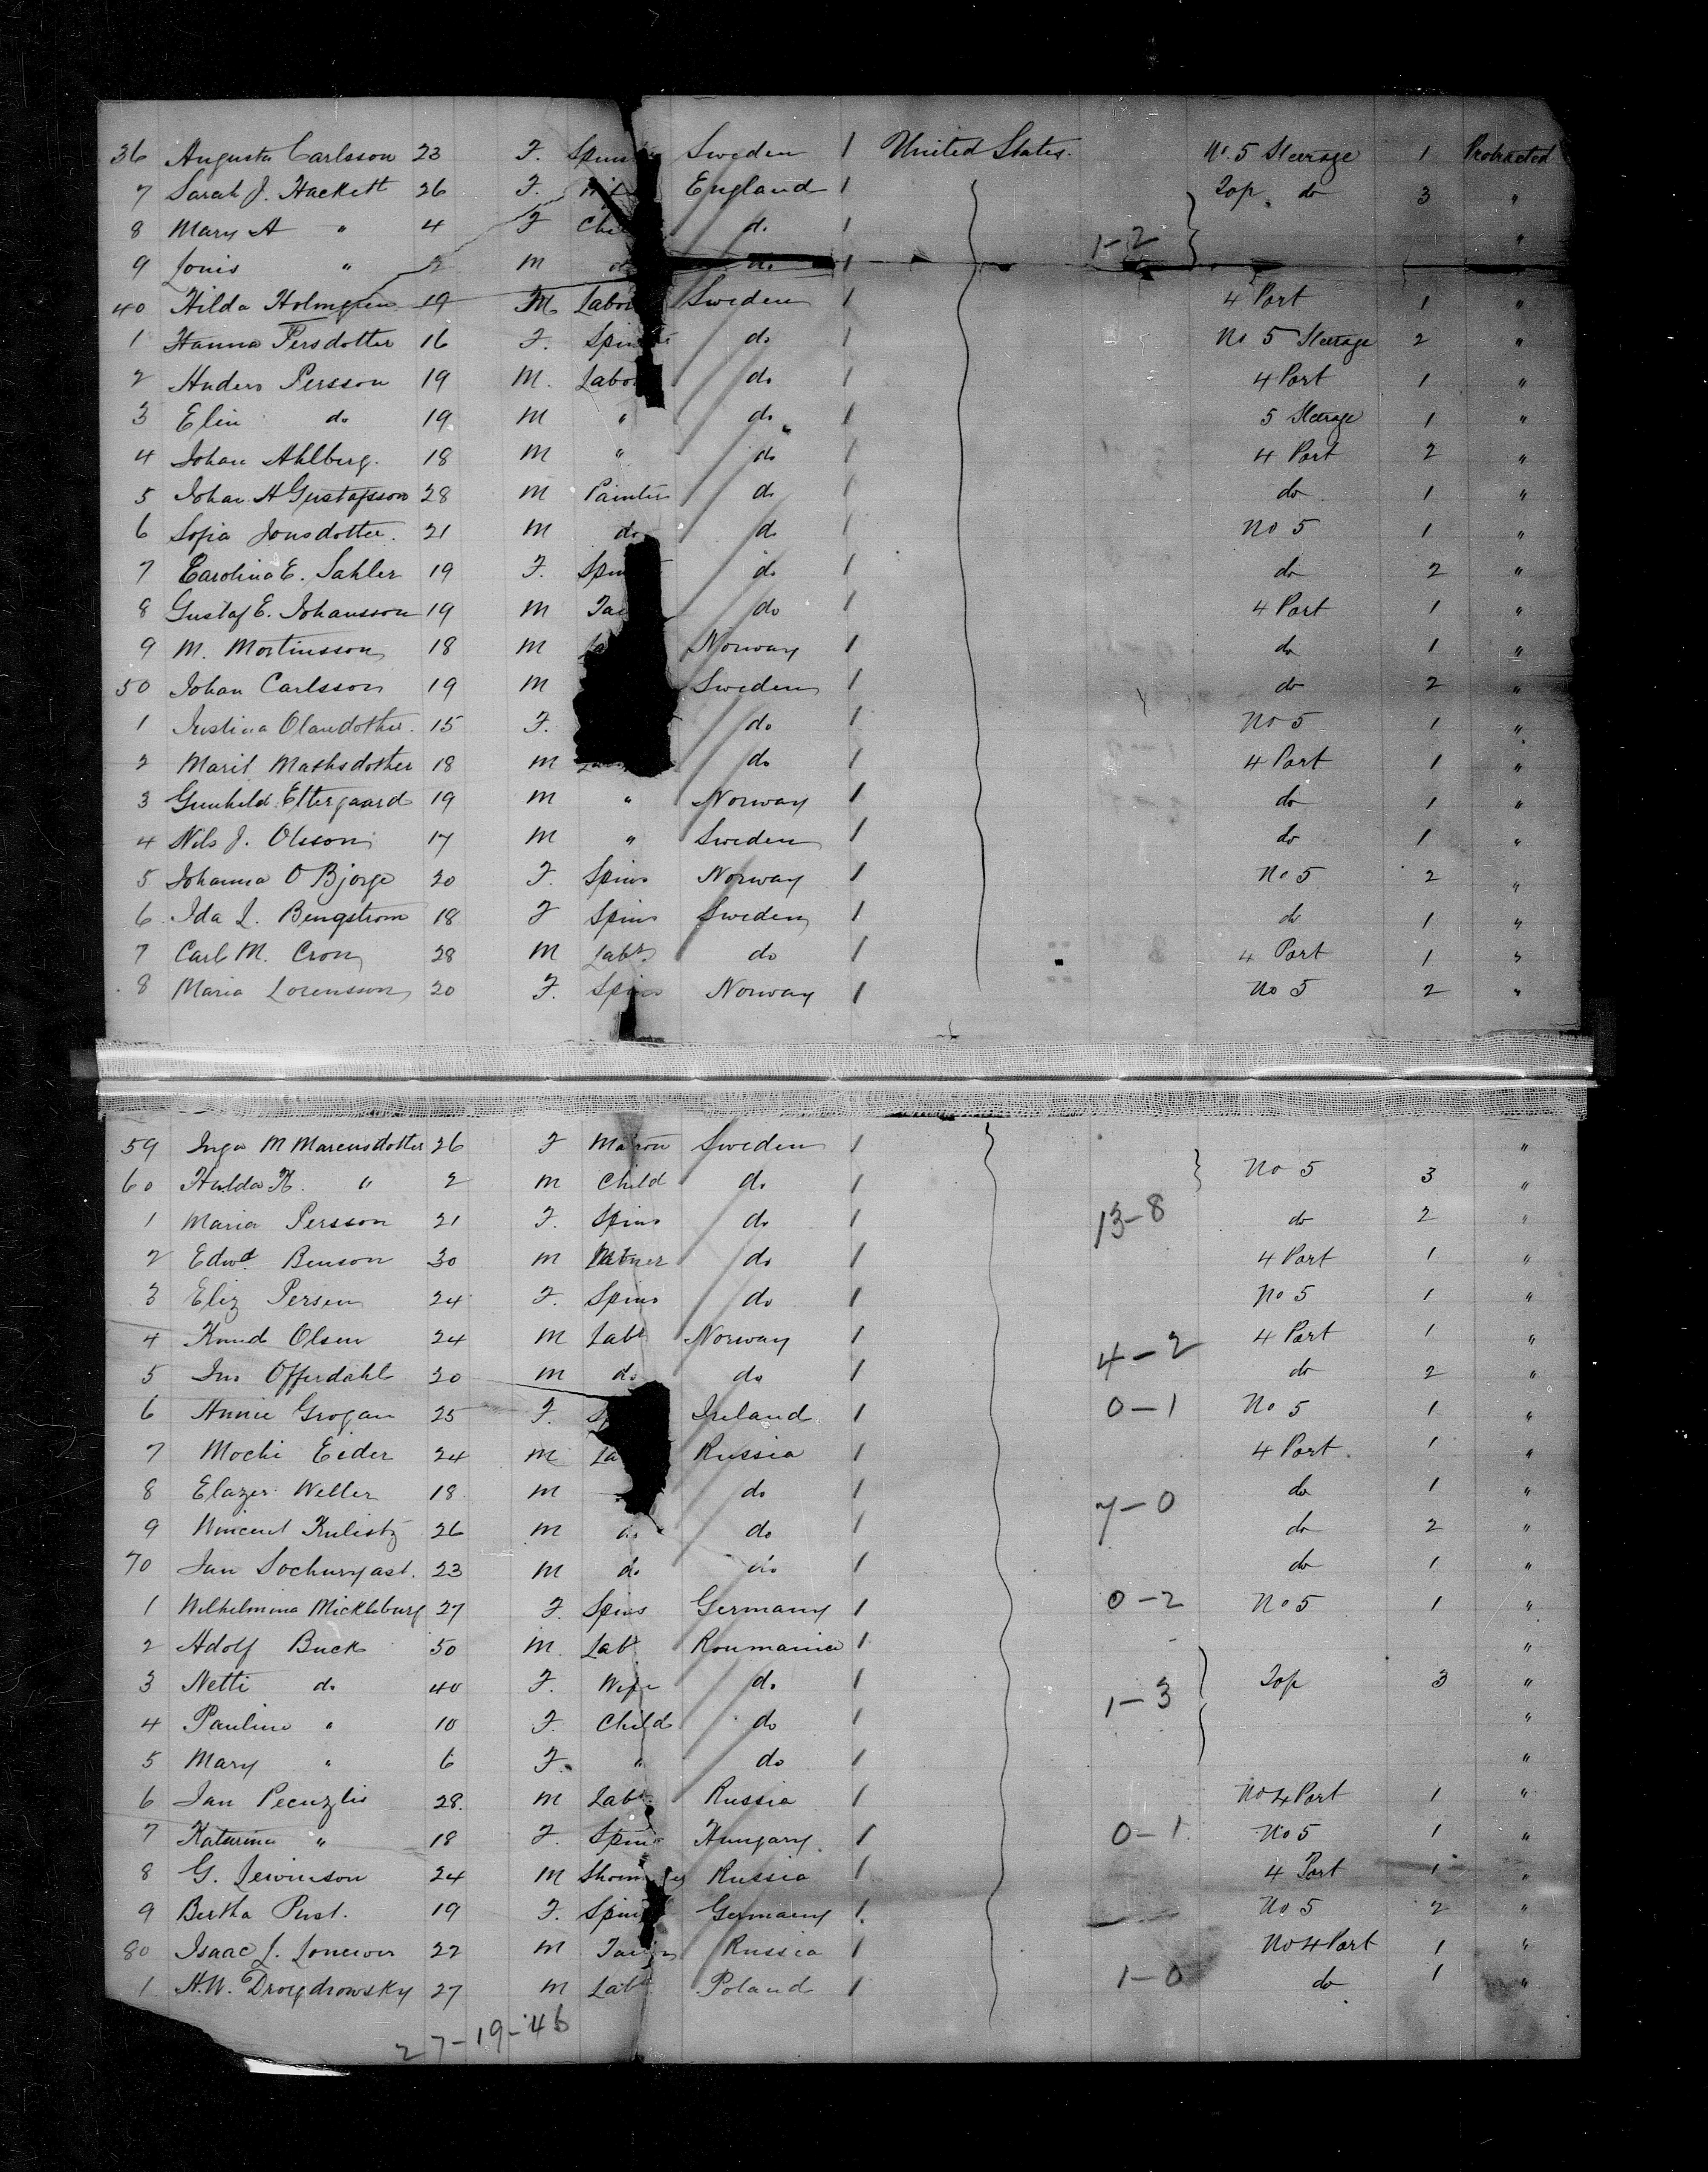 36 Augusta Carlsson 23 F. Spins Sweden 1 United States. No. 5 Steerage 1 Protracted
7 Sarah J. Hackett 26 F. England 1 Top do 3 "
8 Mary A " 4 F Chi do. 1 1-2 "
9 Louis " 2 M do 1
40 Hilda Holmgren 19 M Labor Sweden 1 4 Port 1 "
1 Hanna Persdotter 16 F. Spin do 1 No 5 Steerage 2 "
2 Anders Persson 19 M. Labor do 1 4 Port 1 "
3 Elin do 19 M " do 1 5 Steerage 1 "
4 Johan Ahlberg. 18 M " do 1 4 Port 2 "
5 Johan A Gustafsson 28 M Painter do 1 do 1 "
6 Sofia Jonsdotter. 21 M do do 1 No 5 1 "
7 Carolina E. Sahler 19 F. Spin do 1 do 2 "
8 Gustaf E. Johansson 19 M Tai do 1 4 Port 1 "
9 M. Mortinsson 18 M La Norway 1 do 1 "
50 Johan Carlsson 19 M Sweden 1 do 2 "
1 Justina Olaudotter. 15 F. do 1 No 5 1 "
2 Marit Mathsdotter 18 M do 1 4 Port 1 "
3 Gunhild Eltergaard 19 M " Norway 1 do 1 "
4 Nils J. Olsson 17 M " Sweden 1 do 1 "
5 Johanna O Bjorge 20 F. Spins Norway 1 No 5 2 "
6 Ida L. Bengstrom 18 F Spins Sweden 1 do 1 "
7 Carl M. Cron 28 M Labr. do 1 4 Port 1 "
8 Maria Lorensson 20 F. Spins Norway 1 No 5 2 "
59 Inga M Marcusdotter 26 F Matron Sweden 1 "
60 Hulda K. " 2 M Child do. 1 No 5 3 "
1 Maria Persson 21 F. Spins do 1 13-8 do 2 "
2 Edwd. Benson 30 M do 1 4 Port 1 "
3 Eliz Persen 24 F. Spins do 1 No 5 1 "
4 Knud Olsen 24 M Labr Norway 1 4-2 4 Port 1 "
5 Jno Offerdahl 20 M do do 1 do 2 "
6 Annie Grogan 25 F. Sp Ireland 1 0-1 No 5 1 "
7 Mochi Eeder 24 M La Russia 1 4 Port. 1 "
8 Elazer Weller 18 M do 1 7-0 do 1 "
9 Wincent Kulistz 26 M do do 1 do 2 "
70 Jan 23 M do do 1 do 1 "
1 Wilhelmina Mickleburg 27 F. Spins Germany 1 0-2 No 5 1 "
2 Adolf Buck 50 M. Labr Roumania 1 "
3 Netti do 40 F. Wife do. 1 1-3 Top 3 "
4 Pauline " 10 F. Child do 1 "
5 Mary " 6 F. " do 1 "
6 Jan Pecuzlis 28. M Labr. Russia 1 No 4 Port 1 "
7 Katarina " 18 F. Spins Hungary. 1 0-1 No 5 1 "
8 G. Lewinson 24 M Russia 1 4 Port 1 "
9 Bertha Pust. 19 F. Spins Germany 1. No 5 2 "
80 Isaac L. 22 M Russia 1 No 4 Port 1 "
1 H.W. Droydrowsky 27 M Labr. Poland 1 1-0 do 1 "
27-19-46